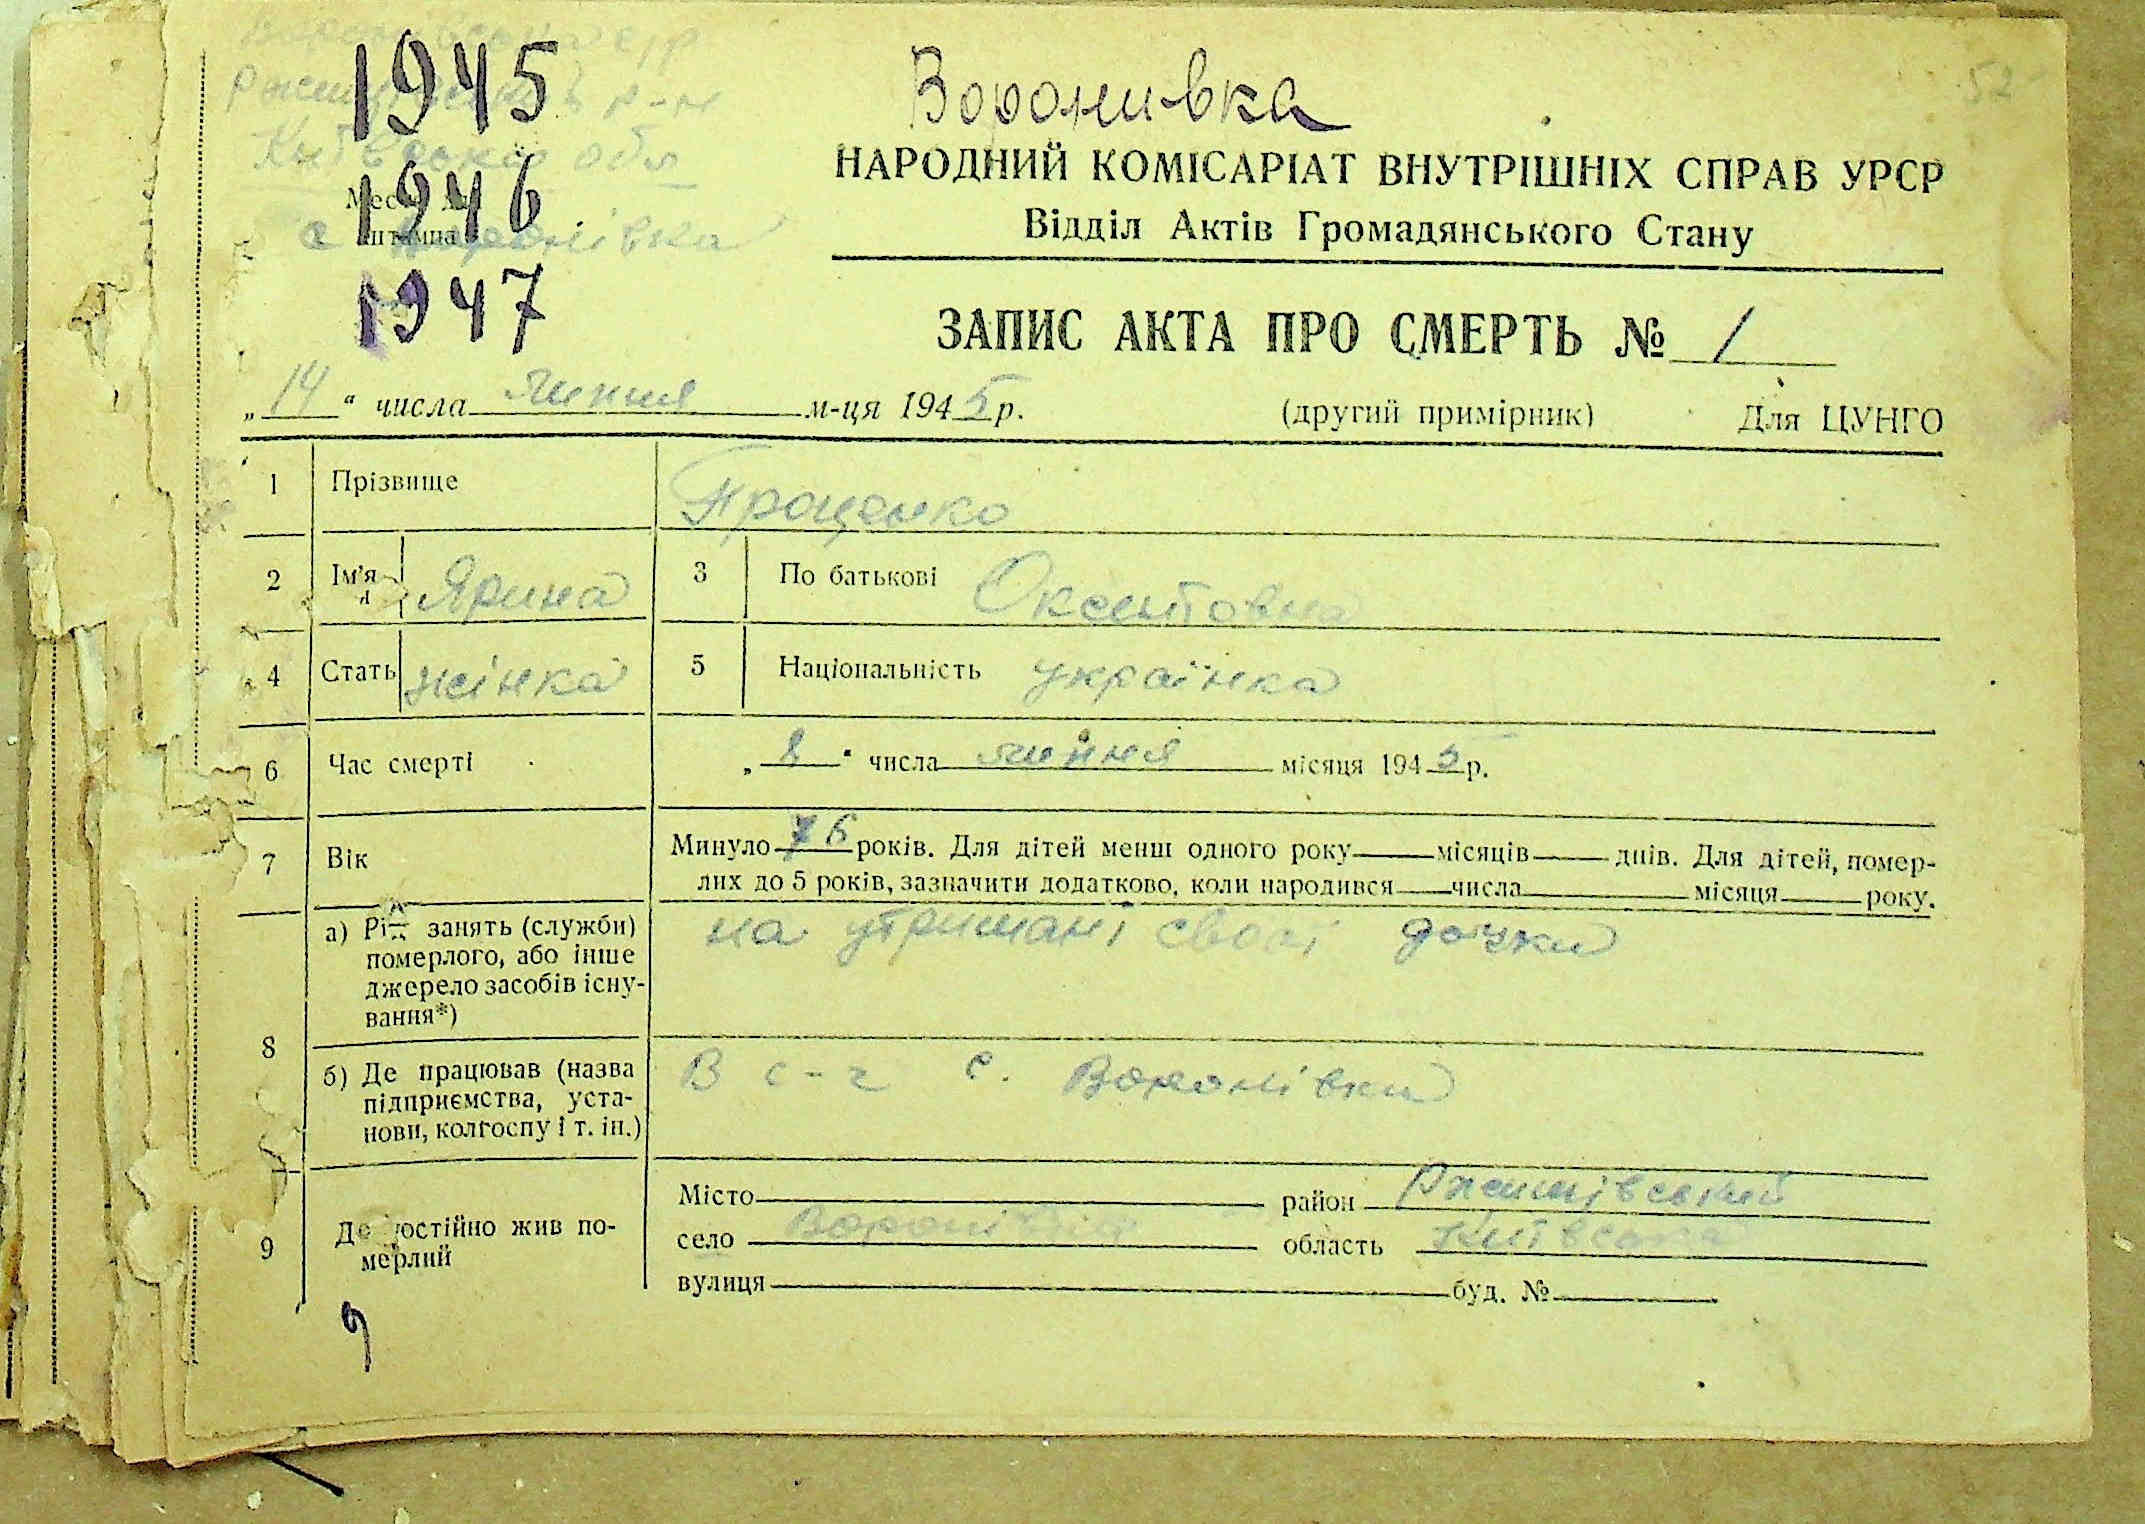 1945
1946
1947
Воронівська с/р
Ржищівський р-н
Київської обл
Місце для
штампа
с Воронівка
Воронивка
52
НАРОДНИЙ КОМІСАРІАТ ВНУТРІШНІХ СПРАВ УРСР
Відділ Актів Громадянського Стану
ЗАПИС АКТА ПРО СМЕРТЬ № 1
„14“ числа липня м-ця 1945 р. (другий примірник) Для ЦУНГО
1 Прізвище Проценко
2 Ім'я Ярина 3 По батькові Оксентовна
4 Стать жінка 5 Національність українка
6 Час смерті „8“ числа липня місяця 1945 р.
7 Вік Минуло 76 років. Для дітей менш одного року місяців днів. Для дітей, помер-
лих до 5 років, зазначити додатково, коли народився числа місяця року.
8 а) Рід занять (служби)
померлого, або інше
джерело засобів існу-
вання*)
на утримані своєї дочки
б) Де працював (назва
підприємства, уста-
нови, колгоспу і т. ін.)
В с-г с. Воронівки
9 Де постійно жив по-
мерлий
Місто район Ржищівський
село Воронівка область Київська
вулиця буд. №
9